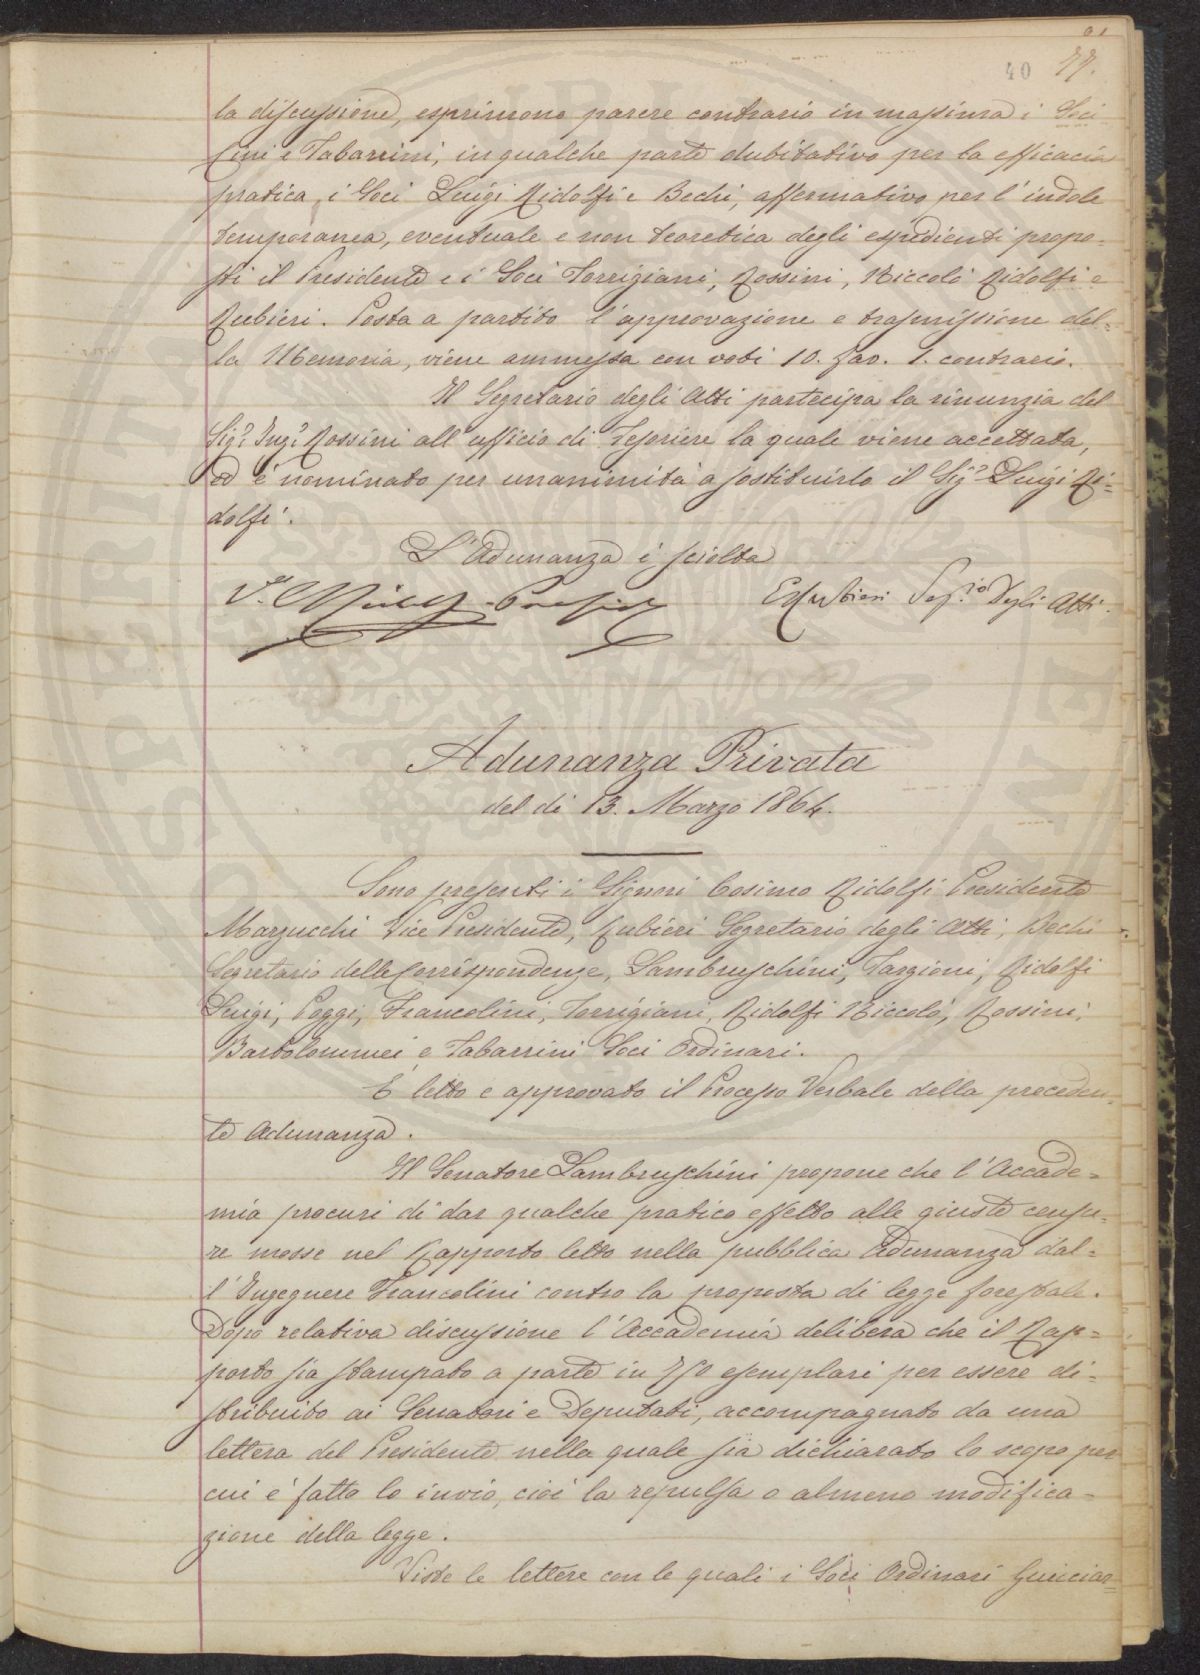 40 77.
la discussione, esprimono parere contrario in massima i Soci
Cini e Tabarrini, in qualche parte dubitativo per la efficacia
pratica, i Soci Luigi Ridolfi e Bechi, affermativo per l'indole
temporanea, eventuale e non teoretica degli espedienti propo=
sti il Presidente e i Soci Torrigiani, Rossini, Niccolò Ridolfi e
Rubieri. Posta a partito l'approvazione e trasmissione del=
la Memoria, viene ammessa con voti 10. fav. 1. contrario.
Il Segretario degli Atti partecipa la rinunzia del
Sigr. Ingr. Rossini all'ufficio di Tesoriere la quale viene accettata,
ed è nominato per unanimità a sostituirlo il Sigr. Luigi Ri=
dolfi.
L'Adunanza è sciolta
C. Ridolfi Presidte
ERubieri Segrio. degli Atti.
Adunanza Privata
del dì 13. Marzo 1864.
Sono presenti i Signori Cosimo Ridolfi Presidente
Marzucchi Vice Presidente, Rubieri Segretario degli Atti, Bechi
Segretario delle Corrispondenze, Lambruschini, Targioni, Ridolfi
Luigi, Poggi, Francolini, Torrigiani, Ridolfi Niccolò, Rossini,
Bartolommei e Tabarrini Soci Ordinari.
È letto e approvato il Processo Verbale della preceden=
te Adunanza.
Il Senatore Lambruschini propone che l'Accade=
mia procuri di dar qualche pratico effetto alle giuste censu=
re mosse nel Rapporto letto nella pubblica Adunanza dal=
l'Ingegnere Francolini contro la proposta di legge forestale.
Dopo relativa discussione l'Accademia delibera che il Rap=
porto sia stampato a parte in 750 esemplari per essere di=
stribuito ai Senatori e Deputati, accompagnato da una
lettera del Presidente nella quale sia dichiarato lo scopo per
cui è fatto lo invio, cioè la repulsa o almeno modifica=
zione della legge.
Viste le lettere con le quali i Soci Ordinari Guicciar=